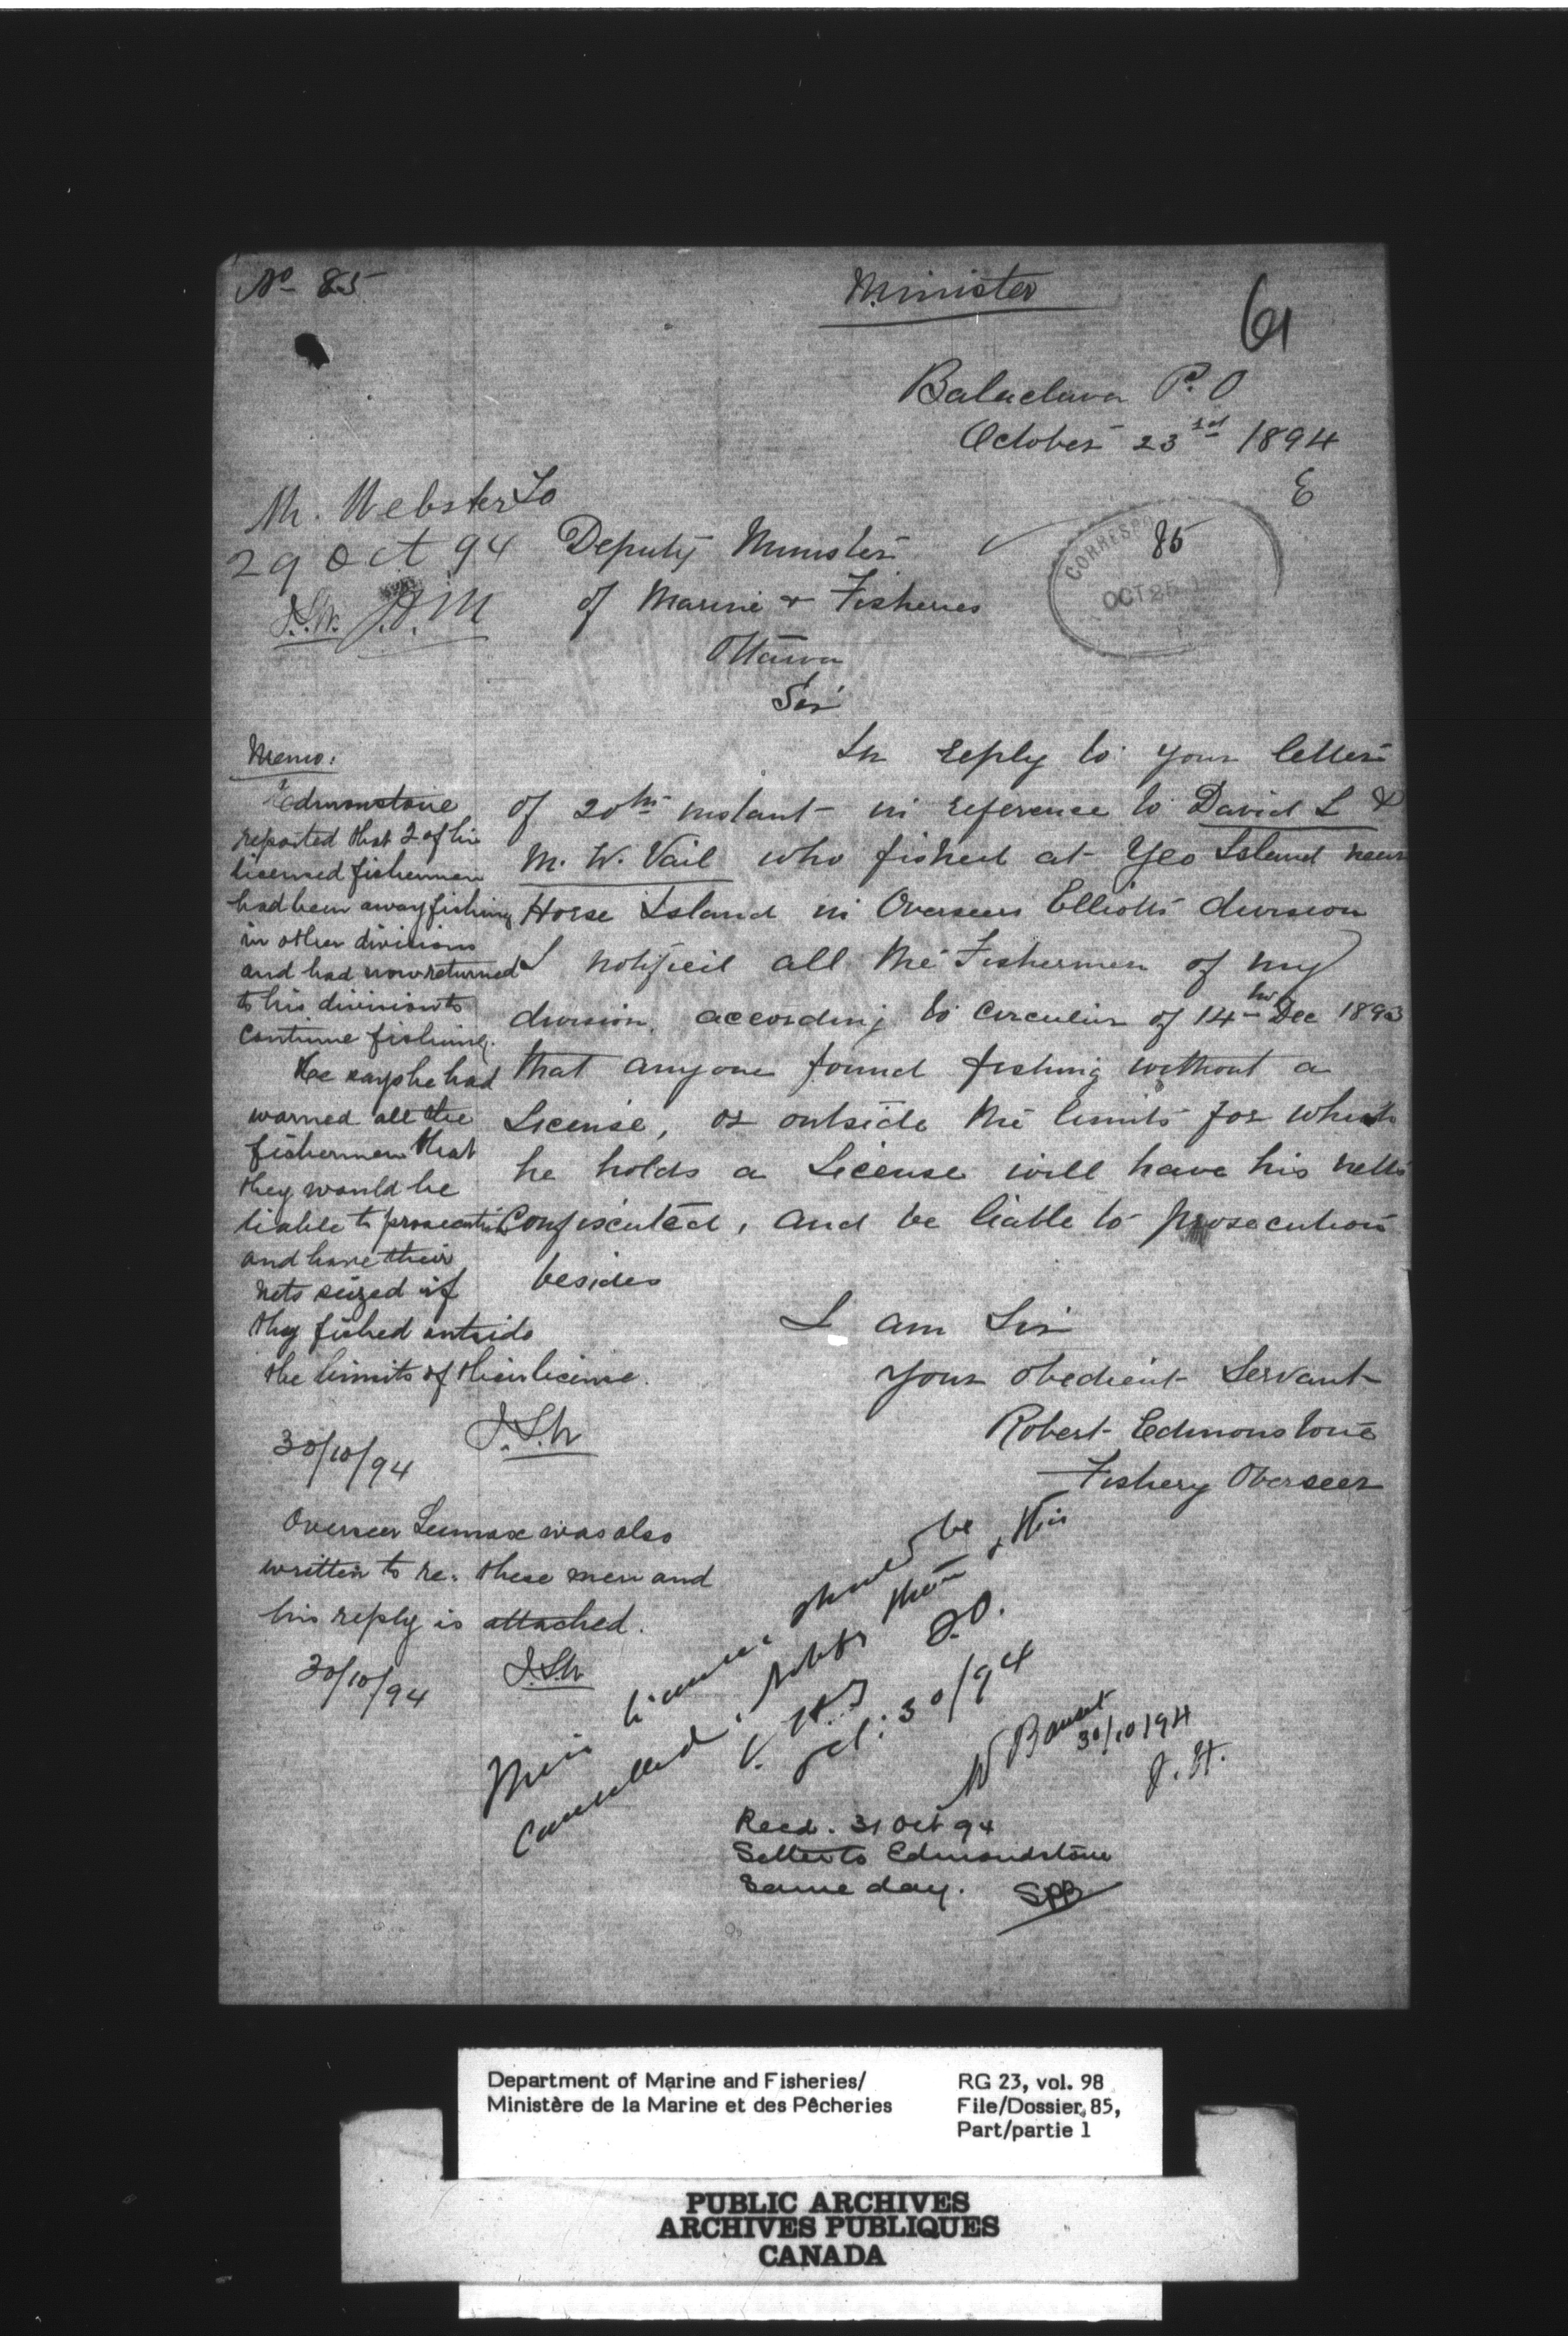 No 85
Minister
61
Balaclava P.O
October 23rd 1894
E
Mr. Webster
29 Oct 94
J.S.W.
To
Deputy Minister
of Marine & Fisheries
Ottawa
CORRESPO
85
OCT 25
Sir
In reply to your letter
of 20th instant in reference to David L &
M. W. Vail who fished at Yeo Island near
Horse Island in Overseer Elliotts division
I notified all the Fishermen of my
division, according to Circular of 14th Dec 1893
that anyone found fishing without a
License, or outside the limits for which
he holds a License will have his netts
Confiscated, and be liable to prosecution
besides
I am Sir
Your obedient Servant
Robert Edmonstone
Fishery Overseer
Memo:
Edmonstone
reported that 2 of his
licensed fishermen
had been away fishing
in other divisions
and had now returned
to his division to
continue fishing.
He says he had
warned all the
fishermen that
they would be
liable to prosecution
and have their
nets seized if
they fished outside
the limits of their license.
30/10/94 J.S.W
Overseer was also
written to re. these men and
his reply is attached.
30/10/94 J.S.W
licenses should be
cancelled, notify them & this
30/94
30/10/94
Recd. 31 Oct 94
Letter to Edmondstone
Same day. SPB
Department of Marine and Fisheries/
Ministère de la Marine et des Pêcheries
RG 23, vol. 98
File/Dossier 85,
Part/partie 1
PUBLIC ARCHIVES
ARCHIVES PUBLIQUES
CANADA